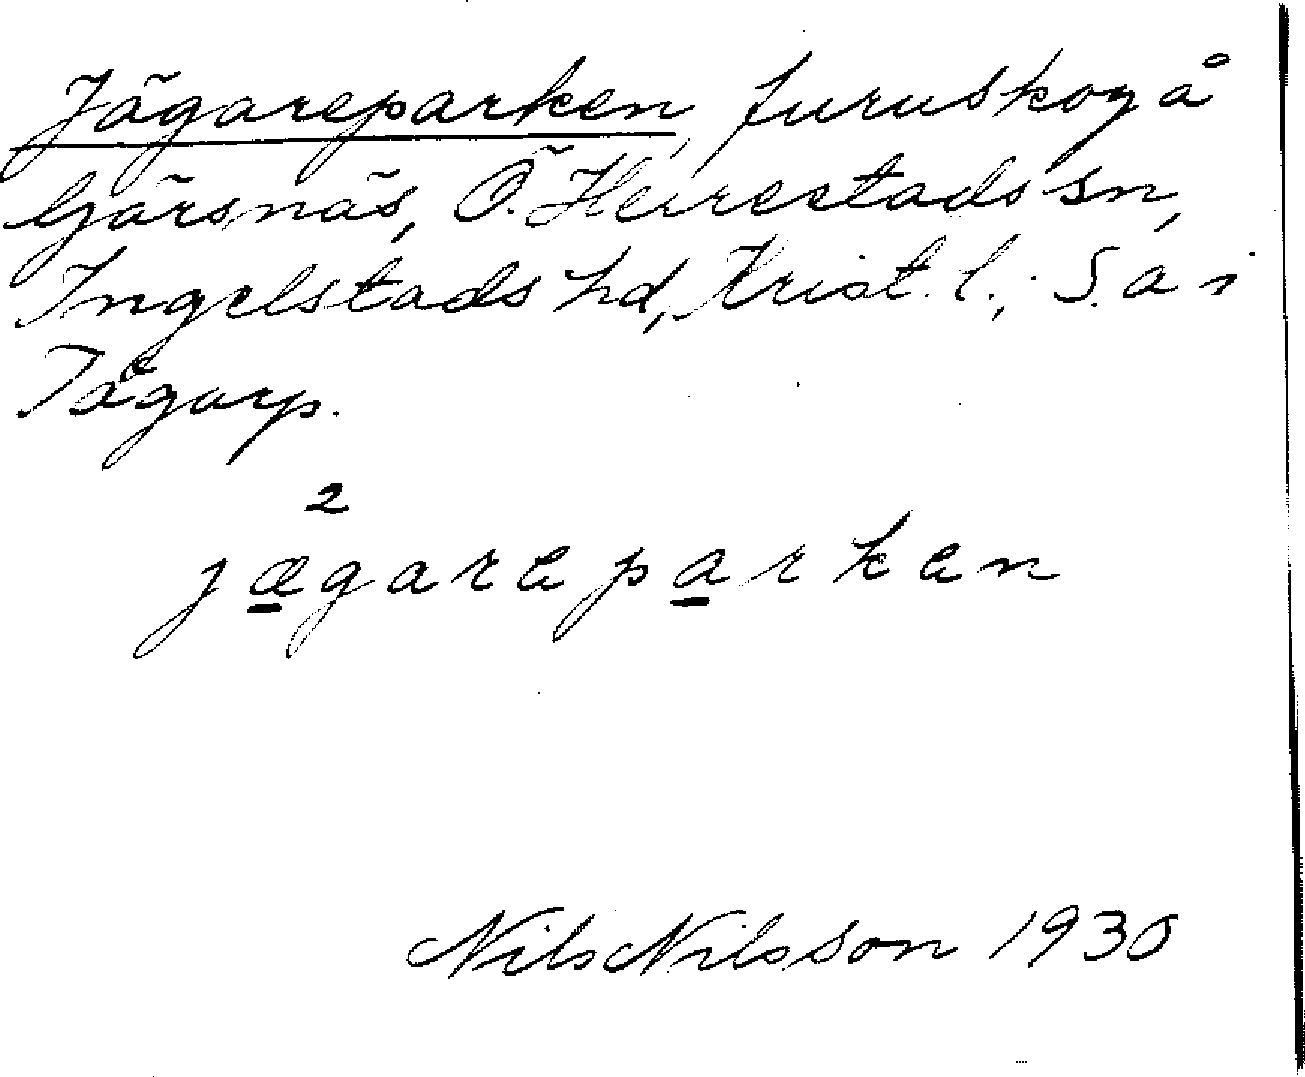 Jägareparken, furuskog å
Gärsnäs, Ö. Herrestads sn,
Ingelstads hd, Krist. l.; S. a i
Tågarp.
2
jægareparken
Nils Nilsson 1930